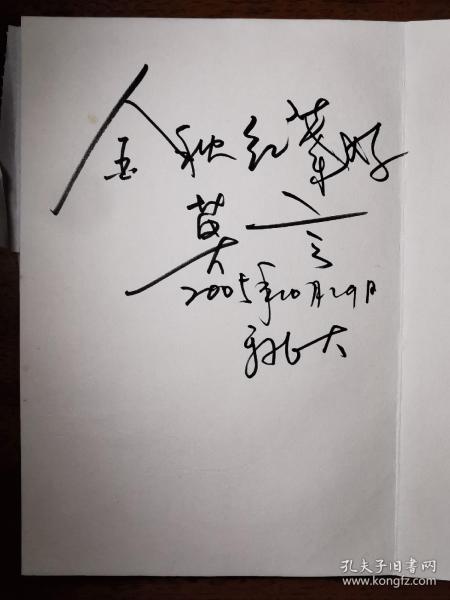 金秋红葉好
莫言
2005年10月29日
北大
孔夫子旧书网
www.kongfz.com